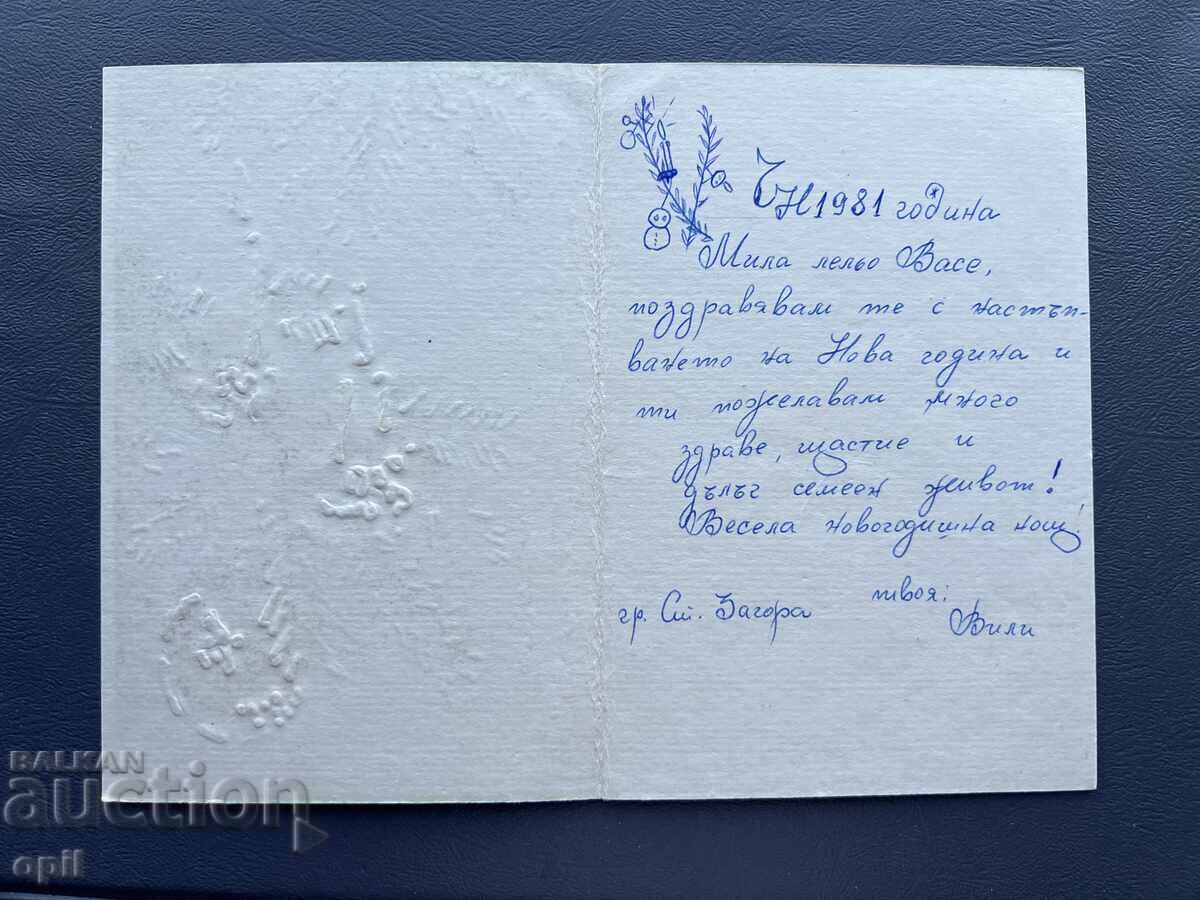 ЧН 1981 година
Мила лельо Васе,
поздравявам те с настъп-
ването на Нова година и
ти пожелавам много
здраве, щастие и
дълъг семеен живот!
Весела новогодишна нощ!
твоя:
гр. Ст. Загора Вили
BALKAN
auction
opil